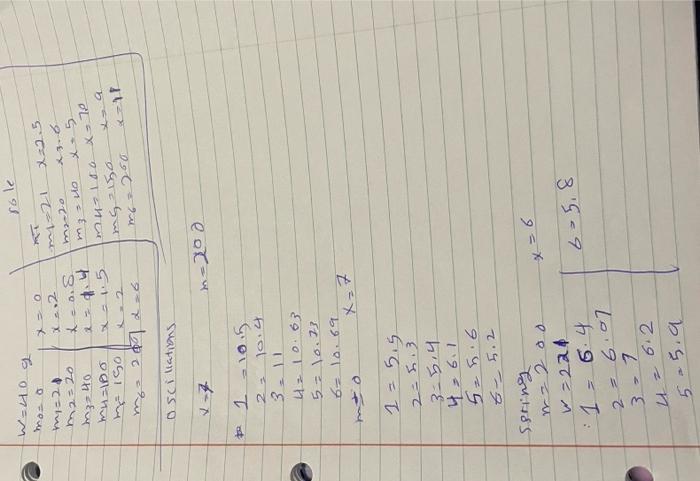 W=40 g
m0=0 x=0
m1=21 x=.2
m2=20 x=0.8
m3=40 x=1.4
m4=100 x=1.5
m5=150 x=2
m6=200 x=6
m1=21 x=2.5
m2=20 x=3.6
m3=40 x=5
m4=100 x=70
m5=150 x=9
m6=200 x=11
Oscillations
x=7 m=200
1=10.5
2=10.4
3=11
4=10.63
5=10.73
6=10.69
m=0 x=7
1=5.5
2=5.3
3=5.4
4=6.1
5=5.6
6=5.2
Spring
m=200 x=6
W=221
1=6.4
2=6.07
3=7
4=6.2
5=5.9
6=5.8